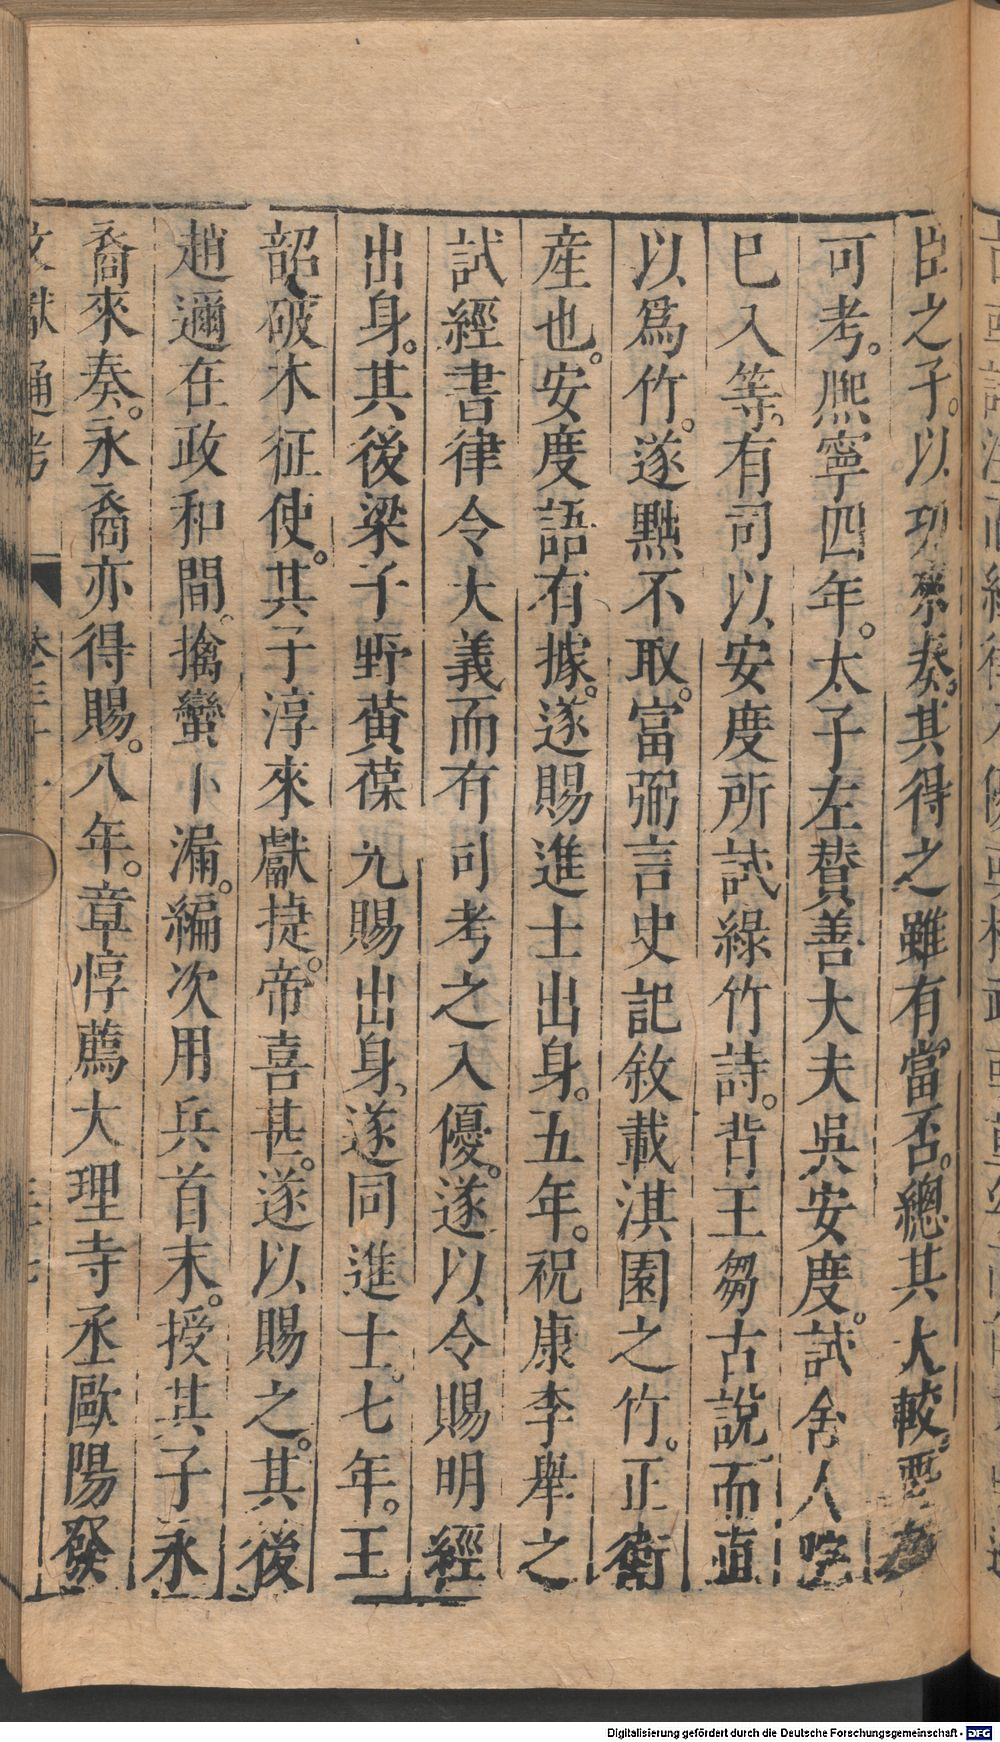 臣之子。以功來奏。其得之雖有當否。總其大較。要
可考。熈寧四年。太子左賛善大夫吳安度。試舍人院
已入等。有司以安度所試綠竹詩。背王芻古說。而直
以爲竹。遂黜不取。富弼言史記敘載淇園之竹。正衛
產也。安度語有據。遂賜進士出身。五年。祝康李舉之
試經書律令大義而有司考之入優。遂以令賜明經
出身。其後梁子野黃葆光賜出身。遂同進士。七年。王
韶破木征使。其子淳來獻捷。帝喜甚。遂以賜之。其後
趙遹在政和間。擒蠻卜漏。編次用兵首末。授其子永
裔來奏。永裔亦得賜。八年。章惇薦大理寺丞歐陽發
文獻通考 卷三十一
Digitalisierung gefördert durch die Deutsche Forschungsgemeinschaft - DFG